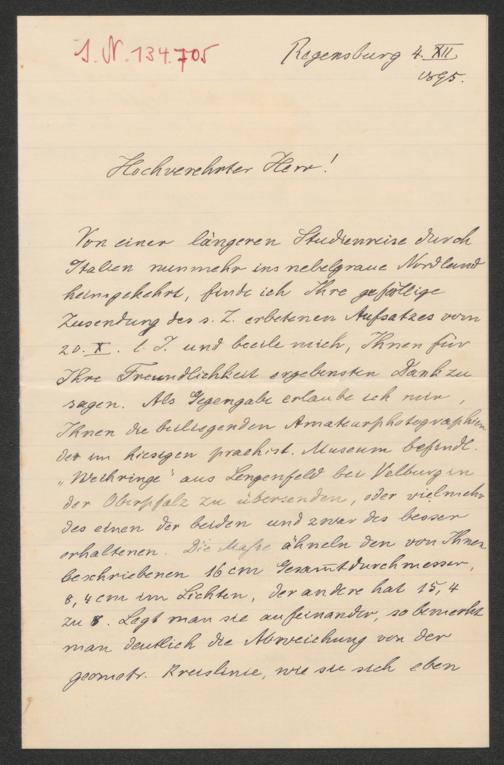 J. N. 134.705
Regensburg 4. XII
1895.
Hochverehrter Herr!
Von einer längeren Studienreise durch
Italien nunmehr ins nebelgraue Nordland
heimgekehrt, finde ich Ihre gefällige
Zusendung des s. Z. erbetenen Aufsatzes vom
20. X. l. J. und beeile mich, Ihnen für
Ihre Freundlichkeit ergebensten Dank zu
sagen. Als Gegengabe erlaube ich mir,
Ihnen die beiliegenden Amateurphotographien
der im hiesigen praehist. Museum befindl.
"Weihringe" aus Lengenfeld bei Velburg in
der Oberpfalz zu übersenden, oder vielmehr
des einen der beiden und zwar des besser
erhaltenen. Die Maße ähneln den von Ihnen
beschriebenen 16 cm Gesamtdurchmesser,
8,4 cm im Lichten, der andere hat 15,4
zu 8. Legt man sie aufeinander, so bemerkt
man deutlich die Abweichung von der
geometr. Kreislinie, wie sie sich eben